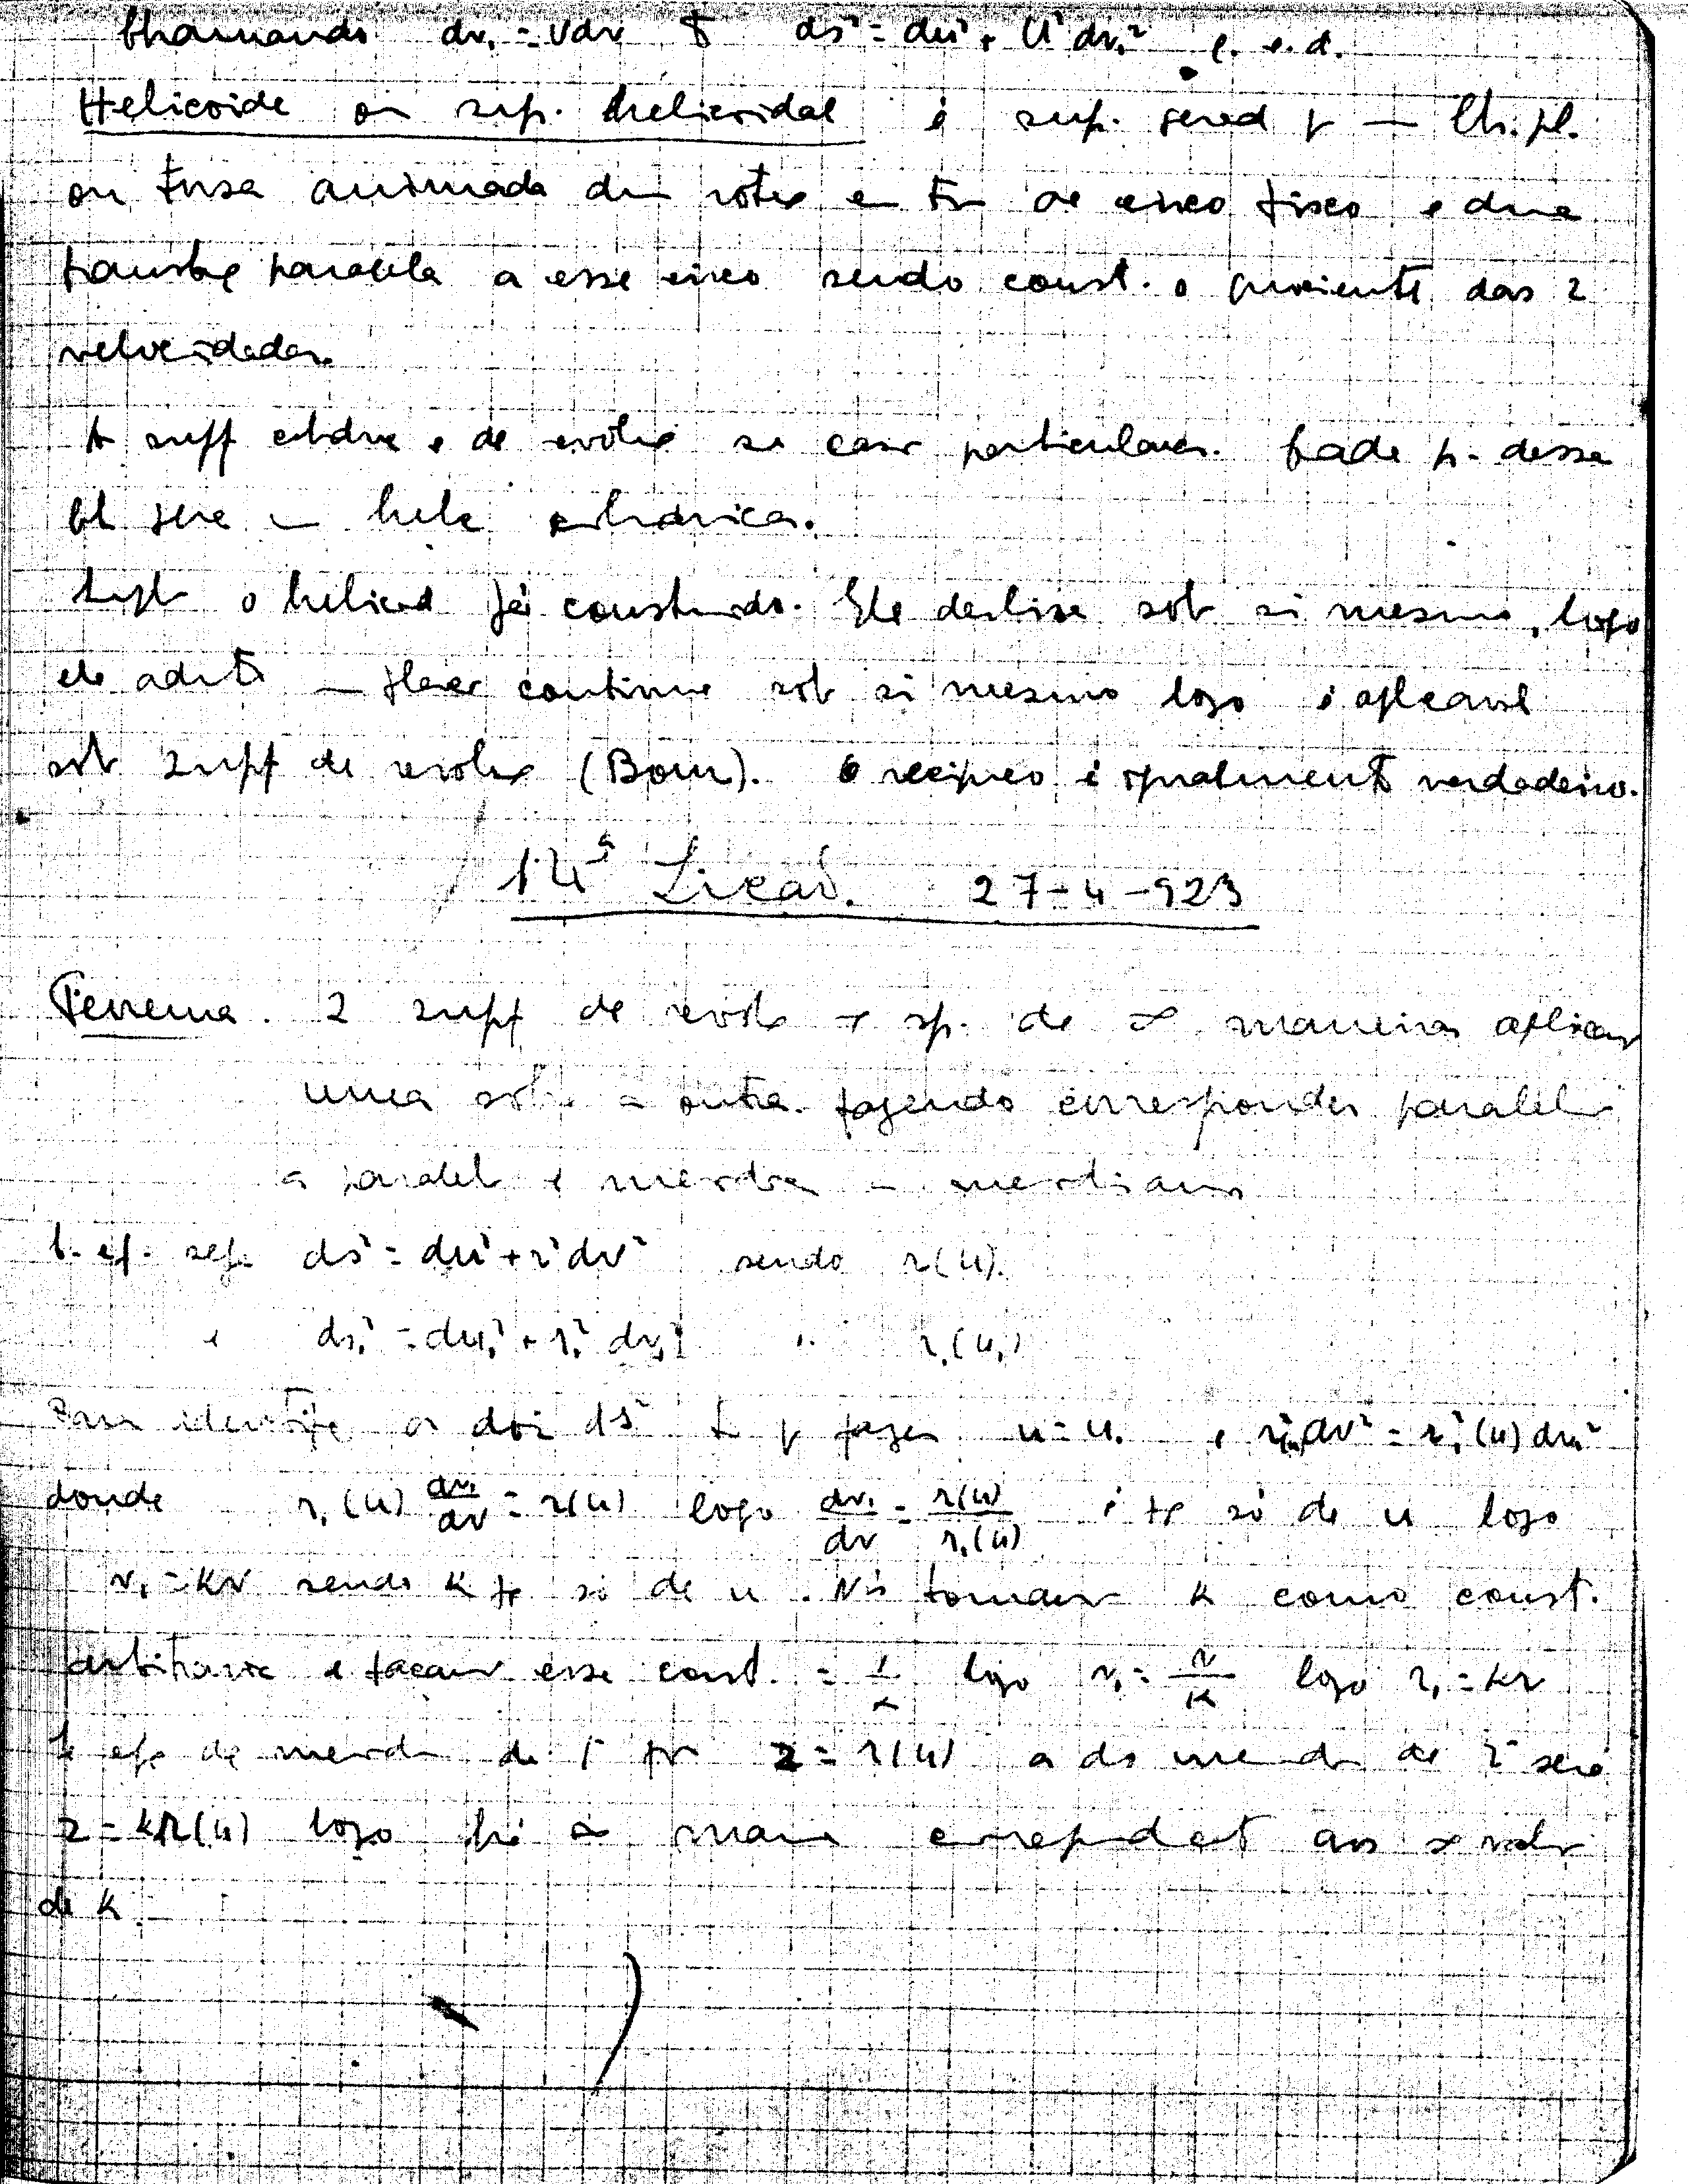 Chamando dv₁ = Vdv t ds² = du² + U²dv₁² c. e. d.
Helicoide ou sup. helicoidal é sup. gerad p — Ch. pl.
ou torsa animada de rotx em tr de eixo fixo e duma
translx paralela a esse eixo sendo const. o quociente das 2
velocidades.
A supf cilindrx e de revolx são caso particulares. Cada p. dessa
será — helx cilindrica.
o helicoid já construido. Ele deslisa sob si mesmo, logo
ele admite — continua sob si mesmo logo é aplicavel
sob 2 supf de revolx (Bour). O reciproco é igualmente verdadeiro.
14ª Lição. 27-4-923
Teorema. 2 supf de revolx sp. de ∞ maneiras aplicar
uma sobre a outra fazendo corresponder paralel
a paralel e merdx a meridiano
ds² = du² + r²dv² sendo r(u).
e ds₁² = du₁² + r₁²dv₁² " r₁(u₁)
Para identifx os dois ds² t p fazer u = u₁ e r²(u)dv² = r₁²(u)dv₁²
donde r₁(u) dv₁/dv = r(u) logo dv₁/dv = r(u)/r₁(u) é só de u logo
v₁ = kv sendo k só de u. Nós tomamos k como const.
arbitraria e façamos essa const. = 1/k logo v₁ = v/k logo r₁ = kr
de merid da 1ª for z = r(u) a do merid da 2ª será
z = kr(u) logo há ∞ manx correspondent aos ∞ valx
de k.